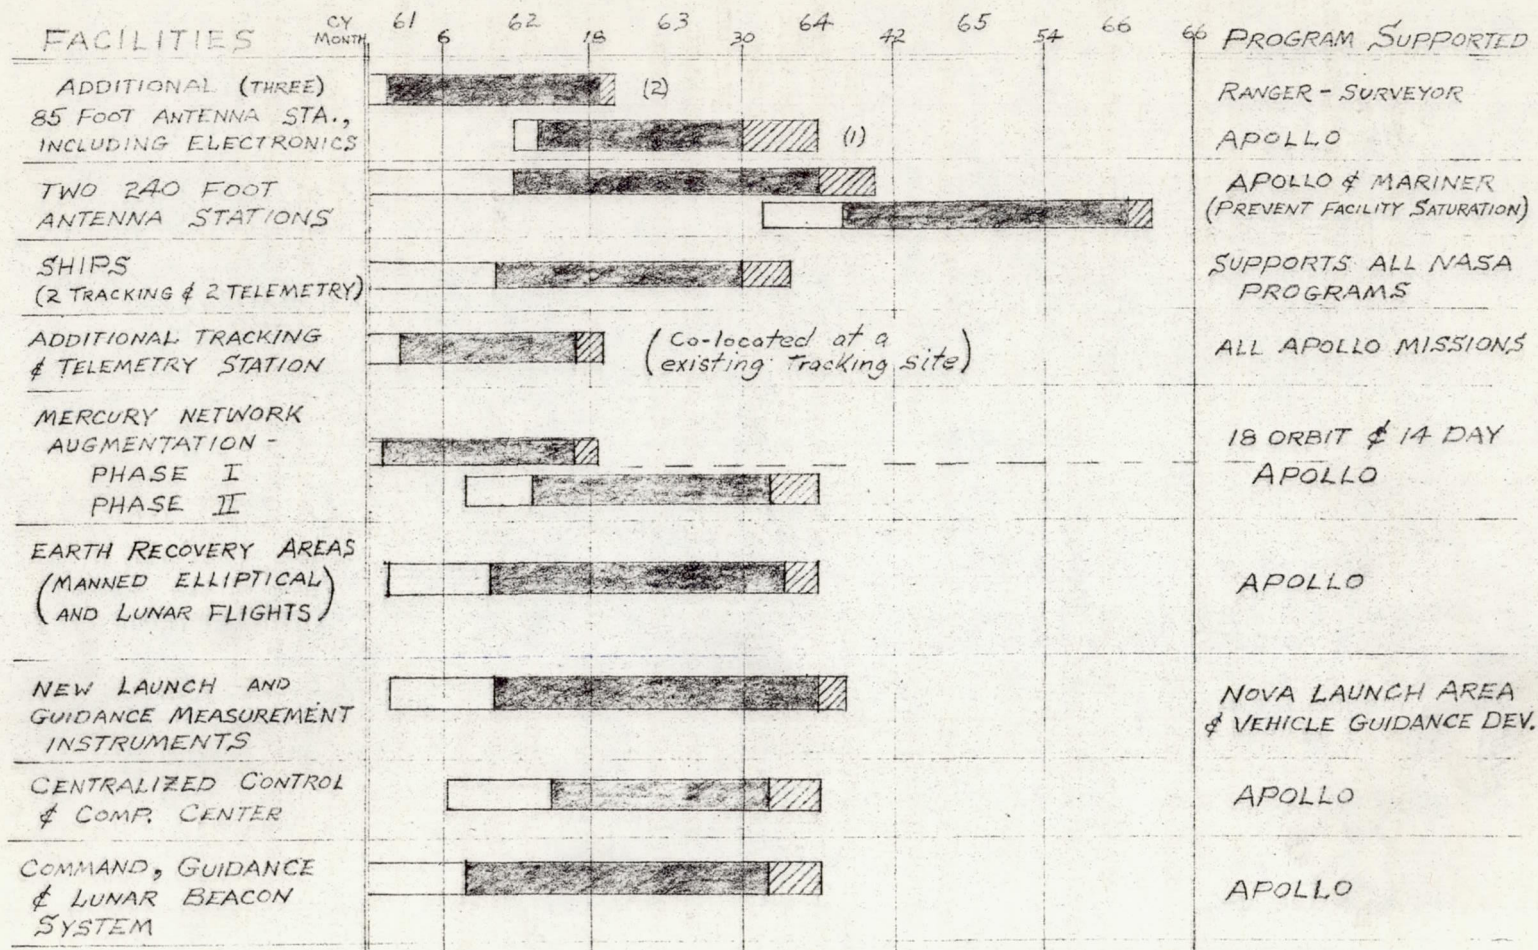 FACILITIES
CY 61 62 63 64 65 66
MONTH 6 18 30 42 54 66
PROGRAM SUPPORTED
ADDITIONAL (THREE)
85 FOOT ANTENNA STA.,
INCLUDING ELECTRONICS
(2)
(1)
RANGER - SURVEYOR
APOLLO
TWO 240 FOOT
ANTENNA STATIONS
APOLLO & MARINER
(PREVENT FACILITY SATURATION)
SHIPS
(2 TRACKING & 2 TELEMETRY)
SUPPORTS ALL NASA
PROGRAMS
ADDITIONAL TRACKING
& TELEMETRY STATION
(Co-located at a
existing Tracking site)
ALL APOLLO MISSIONS
MERCURY NETWORK
AUGMENTATION -
PHASE I
PHASE II
18 ORBIT & 14 DAY
APOLLO
EARTH RECOVERY AREAS
(MANNED ELLIPTICAL
AND LUNAR FLIGHTS)
APOLLO
NEW LAUNCH AND
GUIDANCE MEASUREMENT
INSTRUMENTS
NOVA LAUNCH AREA
& VEHICLE GUIDANCE DEV.
CENTRALIZED CONTROL
& COMP. CENTER
APOLLO
COMMAND, GUIDANCE
& LUNAR BEACON
SYSTEM
APOLLO